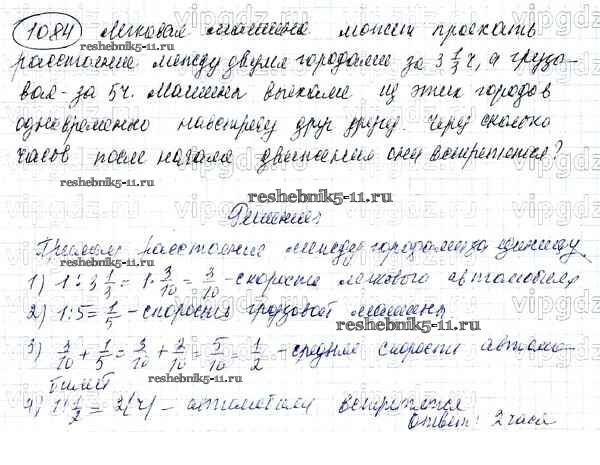 1084 Легковая машина может проехать
расстояние между двумя городами за 3 1/3 ч, а грузо-
вая - за 5 ч. Машины выехали из этих городов
одновременно навстречу друг другу. Через сколько
часов после начала движения они встретятся?
reshebnik5-11.ru
Решение:
Примем расстояние между городами за единицу
1) 1 : 3 1/3 = 1 · 3/10 = 3/10 - скорость легкового автомобиля
2) 1 : 5 = 1/5 - скорость грузовой машины
3) 3/10 + 1/5 = 3/10 + 2/10 = 5/10 = 1/2 - средние скорости автомо-
билей
4) 1 : 1/2 = 2 (ч) - автомобили встретятся
Ответ: 2 часа